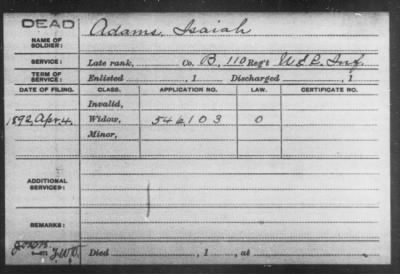 DEAD
NAME OF SOLDIER: Adams, Isaiah
SERVICE: Late rank, Co. B, 110 Reg't U.S.C. Inf.
TERM OF SERVICE: Enlisted , 1 Discharged , 1
DATE OF FILING. CLASS. APPLICATION NO. LAW. CERTIFICATE NO.
Invalid,
1892, Apr. 4. Widow, 546103 O
Minor,
ADDITIONAL SERVICES:
REMARKS:
Died , 1 , at